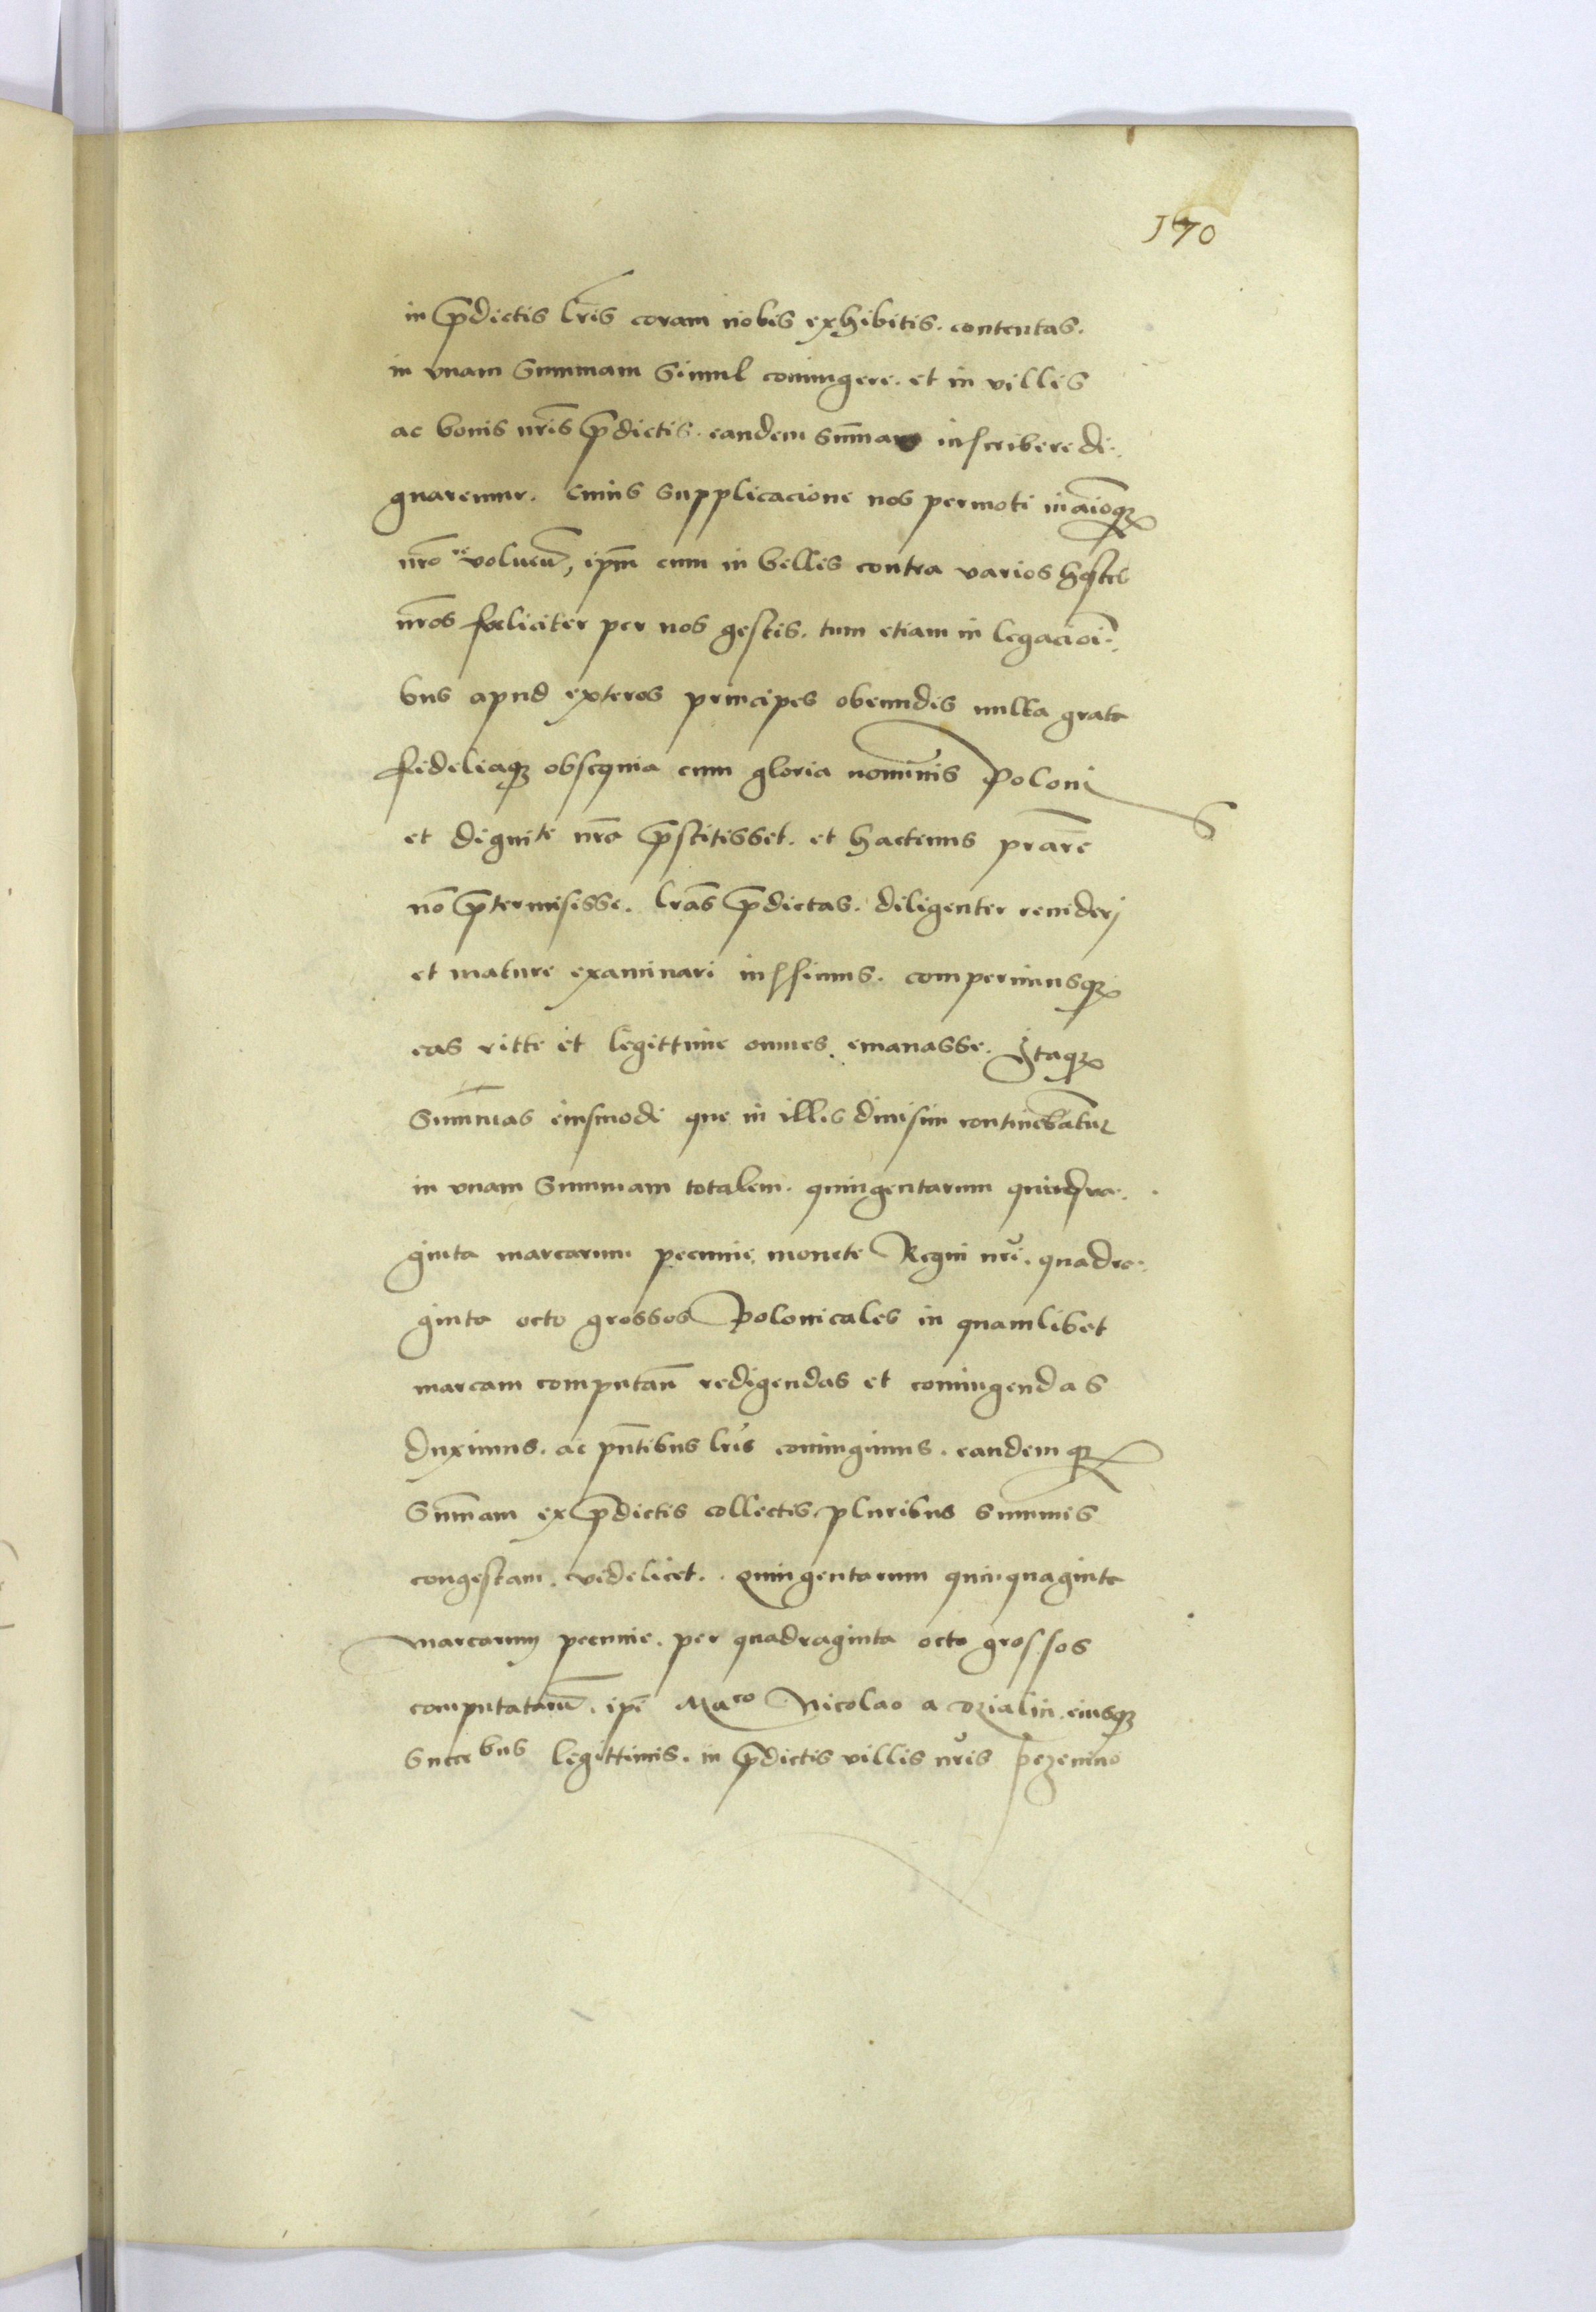 170
in p̄dictis lr̄is coram nobis exhibitis. contentas.
in vnam Summam Simul coniungere. et in villis
ac bonis nr̄is p̄dictis. eandem Sum̄am inscribere di-
gnaremur. Cuius supplicacione nos permoti in aīoq;
nr̄o revoluen̄, ip̄m cum in bellis contra varios hostes
nr̄os fœliciter per nos gestis. tum etiam in legacioī-
bus apud exteros principes obeundis multa grata
fideliaq; obsequia cum gloria nominis Poloni
et dignite nr̄a p̄stitisset. et hactenus prar̄e
nō p̄termisisse. lr̄as p̄dictas. diligenter reuiderj
et mature examinari iussimus. comperimusq;
eas ritte et legittime omnes emanasse. Itaq;
Summas eiusmodi que in illis diuisim continebantur
in vnam Summam totalem. quingentarum quinqua-
ginta marcarum pecunie monete Regni nr̄i. quadra-
ginta octo grossos Polonicales in quamlibet
marcam computan̄ redigendas et coniungendas
duximus. ac pn̄tibus lr̄is coniungimus. eandemq;
Sum̄am ex p̄dictis collectis pluribus summis
congestam. videlicet. quingentarum quinquaginta
marcarum pecunie. per quadraginta octo grossos
computatarū. ip̄i Mᵃᶜᵒ Nicolao a Dzialin. eiusq;
Succᵇᵘˢ legittimis. in p̄dictis villis nr̄is